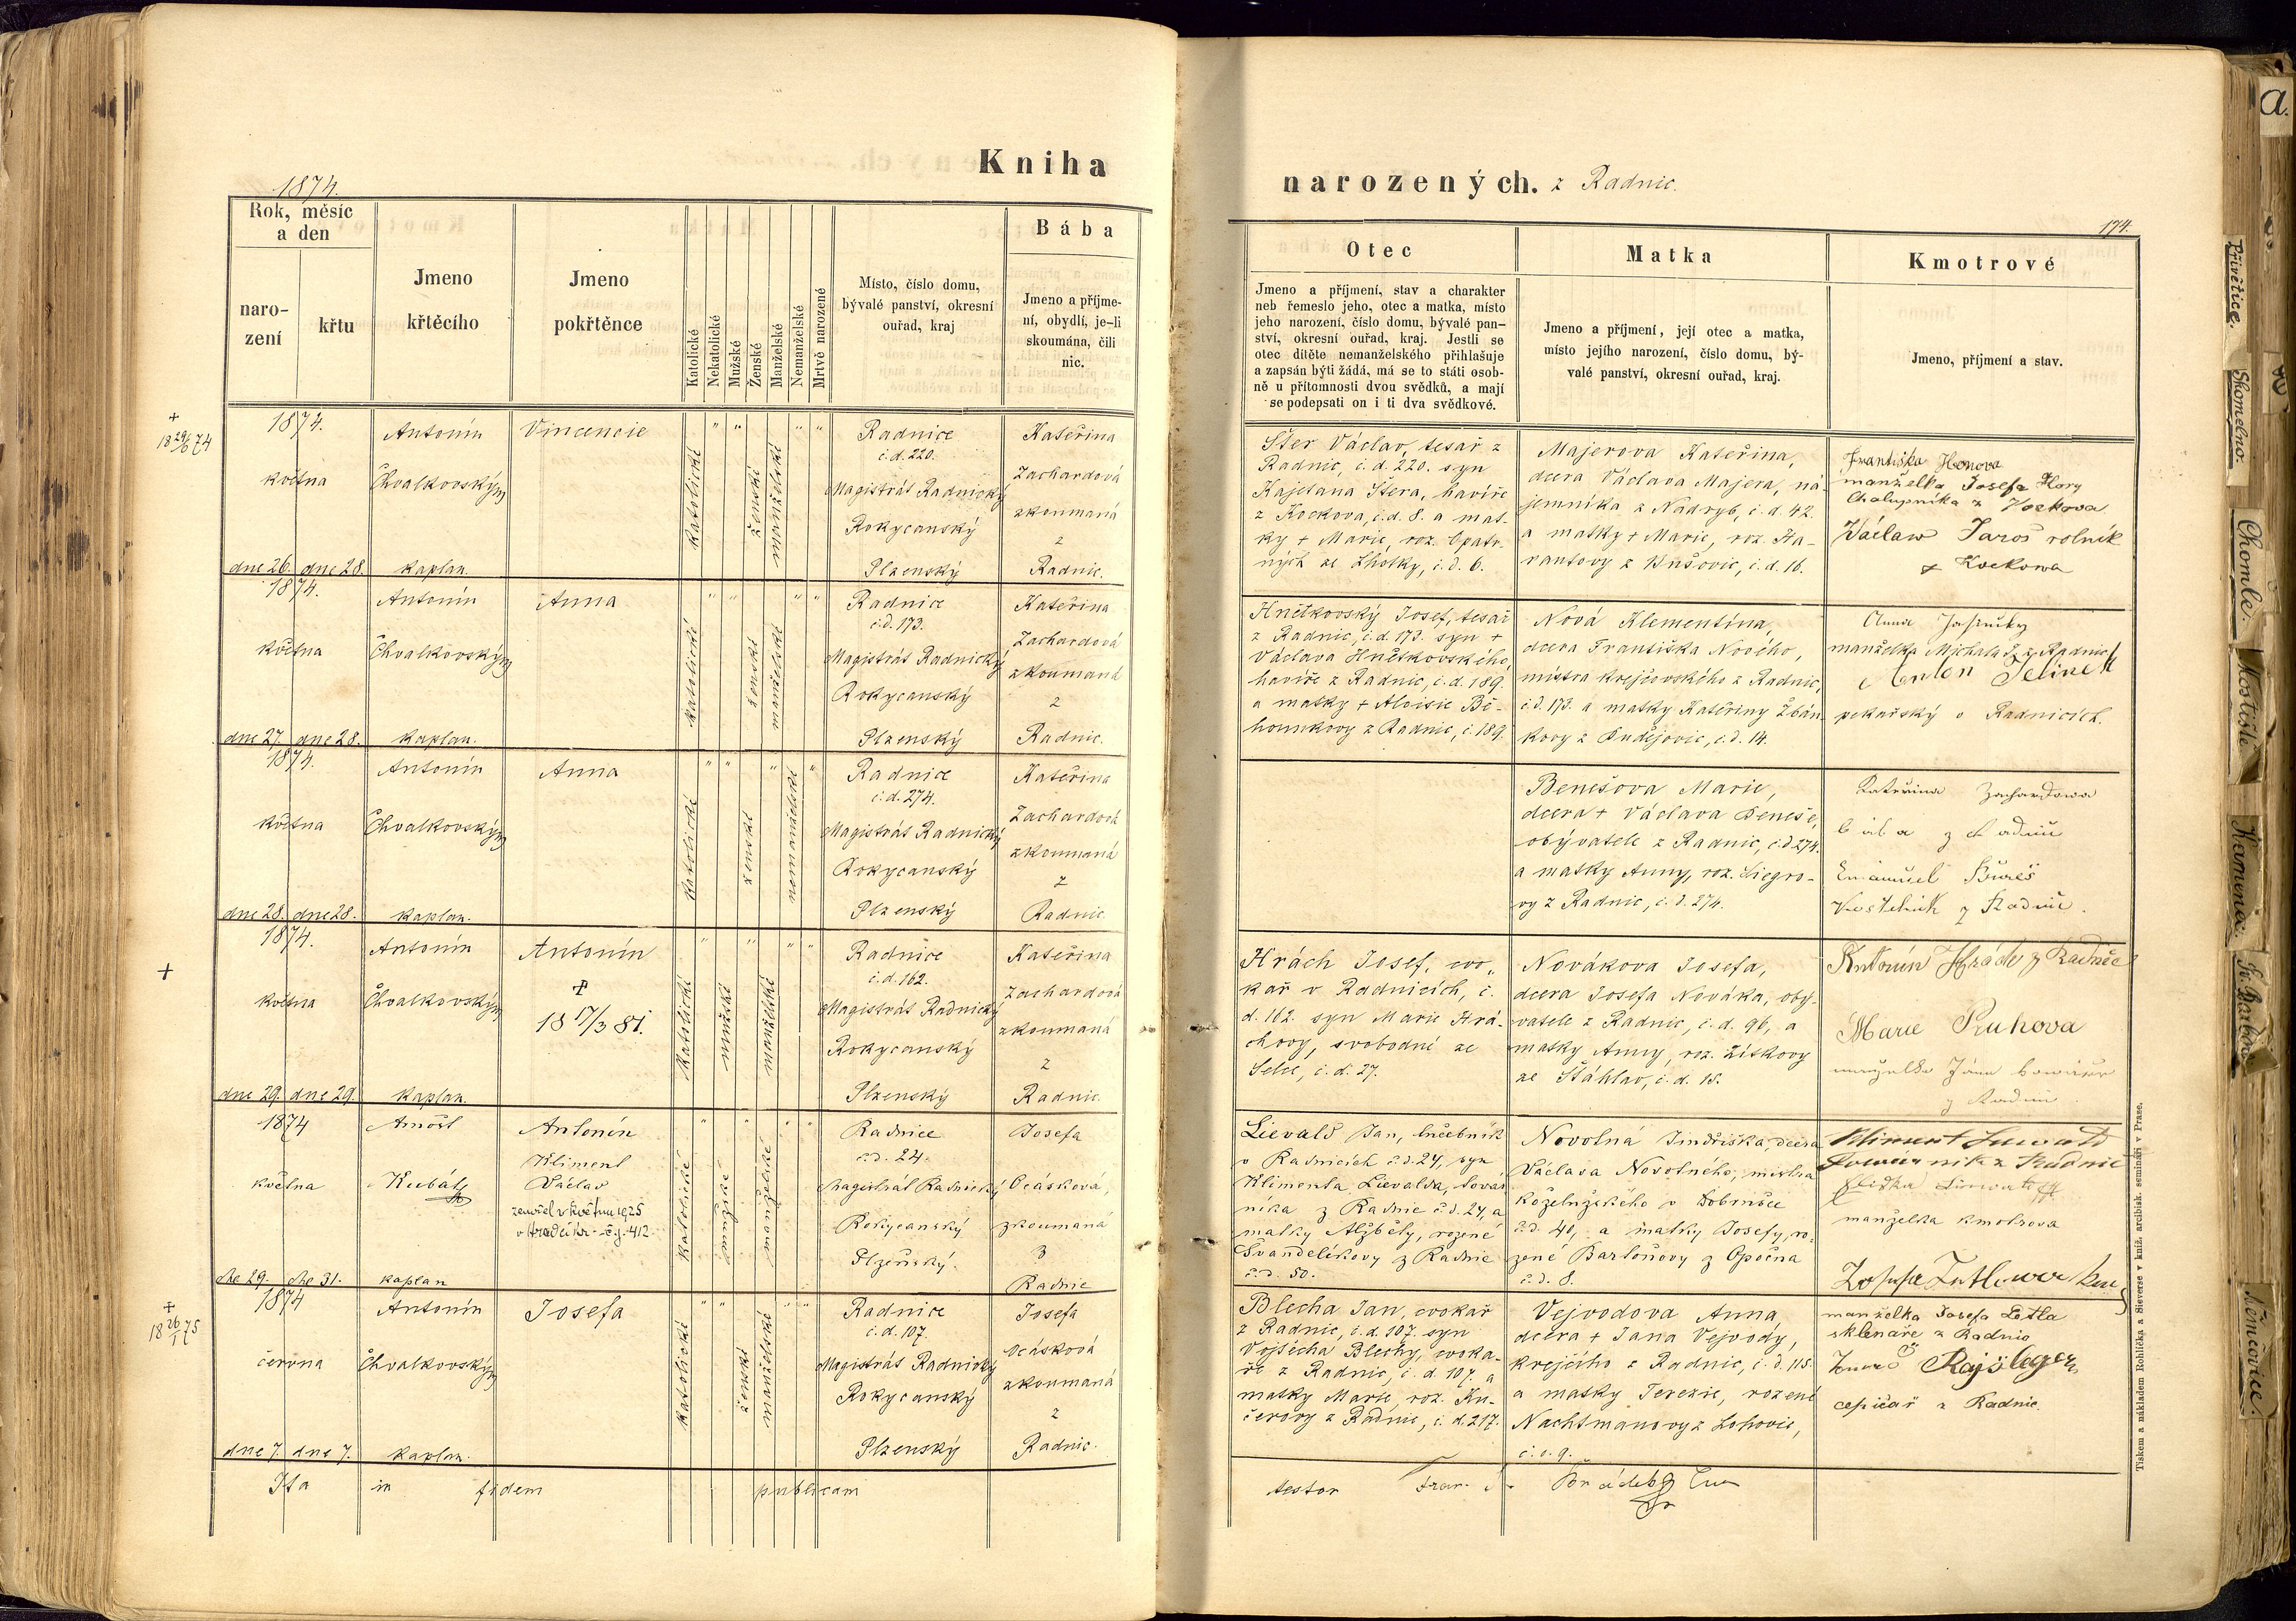 1874.
Kniha
narozených. z Radnic.
174.
Rok, měsíc
a den
naro-
zení
křtu
Jmeno
křtěcího
Jmeno
pokřtěnce
Katolické
Nekatolické
Mužské
Ženské
Manželské
Nemanželské
Mrtvě narozené
Místo, číslo domu,
bývalé panství, okresní
ouřad, kraj
Bába
Jmeno a příjme-
ní, obydlí, je-li
skoumána, čili
nic.
Otec
Jmeno a příjmení, stav a charakter
neb řemeslo jeho, otec a matka, místo
jeho narození, číslo domu, bývalé pan-
ství, okresní ouřad, kraj. Jestli se
otec dítěte nemanželského přihlašuje
a zapsán býti žádá, má se to státi osob-
ně u přítomnosti dvou svědků, a mají
se podepsati on i ti dva svědkové.
Matka
Jmeno a příjmení, její otec a matka,
místo jejího narození, číslo domu, bý-
valé panství, okresní ouřad, kraj.
Kmotrové
Jmeno, příjmení a stav.
+
18 29/6 74
1874.
května
dne 26. dne 28.
Antonín
Chvalkovský
kaplan.
Vincencie
katolické
ženské
manželské
Radnice
č.d. 220.
Magistrát Radnický
Rokycanský
Plzenský
Kateřina
Zachardová
zkoumaná
z
Radnic.
Šter Václav, tesař z
Radnic, č.d. 220. syn
Kajetana Štera, havíře
z Kockova, č.d. 8. a mat-
ky + Marie, roz. Opatr-
ných ze Lhotky, č.d. 6.
Majerova Kateřina,
dcera Václava Majera, ná-
jemníka z Nadryb, č.d. 42.
a matky + Marie, roz. Ha-
rantovy z Bušovic, č.d. 16.
Františka Honova
manželka Josefa Hory
Chalupníka z Kockova
Václaw Jaroš rolník
z Kockowa
1874.
května
dne 27. dne 28.
Antonín
Chvalkovský
kaplan.
Anna
katolické
ženské
manželské
Radnice
č.d. 173.
Magistrát Radnický
Rokycanský
Plzenský
Kateřina
Zachardová
zkoumaná
z
Radnic.
Hnětkovský Josef, tesař
z Radnic, č.d. 173. syn +
Václava Hnětkovského,
havíře z Radnic, č.d. 189.
a matky + Aloisie Bě-
hounkovy z Radnic, č. 189.
Nová Klementina,
dcera Františka Nového,
mistra krejčovského z Radnic,
č.d. 173. a matky Kateřiny Žbán-
kovy z Budějovic, č.d. 14.
Anna
manželka Michala z Radnic
Anton Jelinek
pekařský v Radnicích.
1874.
května
dne 28. dne 28.
Antonín
Chvalkovský
kaplan.
Anna
katolické
ženské
nemanželské
Radnice
č.d. 274.
Magistrát Radnický
Rokycanský
Plzenský
Kateřina
Zachardová
zkoumaná
z
Radnic.
Benešova Marie,
dcera + Václava Beneše,
obývatele z Radnic, č.d. 274.
a matky Anny, roz. Siegro-
vy z Radnic, č.d. 274.
Kateřina Zachardowa
bába z Radnic
Emanuel Bureš
Kostelník z Radnic.
+
1874.
května
dne 29. dne 29.
Antonín
Chvalkovský
kaplan.
Antonín
+
18 17/3 81.
katolické
mužské
manželské
Radnice
č.d. 162.
Magistrát Radnický
Rokycanský
Plzenský
Kateřina
Zachardová
zkoumaná
z
Radnic.
Hrách Josef, cvo-
kař v Radnicích, č.
d. 162. syn Marie Hrá-
chovy, svobodné ze
Selec, č.d. 27.
Novákova Josefa,
dcera Josefa Nováka, oby-
vatele z Radnic, č.d. 96, a
matky Anny, roz. Lískovy
ze Šťáhlav, č.d. 18.
Antonín Hrách z Radnic
Marie Kuhova
manželka Jana
z Radnic.
1874
května
dne 29. dne 31.
Arnošt
Kubát
kaplan
Antonín
Kliment
Václav
zemřel v květnu 1925
v Hradci Kr. - č.j. 412.
katolické
mužské
manželské
Radnice
č.d. 24.
Magistrát Radnický
Rokycanský
Plzeňský.
Josefa
Ocásková,
zkoumaná
z
Radnic
Lievald Jan, hřebík
v Radnicích č.d. 24, syn
Klimenta Lievalda, tovar-
níka z Radnic č.d. 24, a
matky Alžběty, rozené
Švandelíkovy z Radnic
č.d. 50.
Novotná Jindřiška, dcera
Václava Novotného, mistra
koželužského v Dobrušce
č.d. 40, a matky Josefy, ro-
zené Bartoňovy z Opočna
č.d. 8.
Kliment Liewald
z Radnic
manželka kmotrova
+
18 26/1 75
1874
června
dne 7. dne 7.
Antonín
Chvalkovský
kaplan.
Josefa
katolické
ženské
manželské
Radnice
č.d. 107.
Magistrát Radnický
Rokycanský
Plzenský
Josefa
Ocásková
zkoumaná
z
Radnic.
Blecha Jan, cvokař
z Radnic, č.d. 107. syn
Vojtěcha Blechy, cvoka-
ře z Radnic, č.d. 107. a
matky Marie, roz. Ku-
čerovy z Radnic, č.d. 217.
Vejvodova Anna,
dcera + Jana Vejvody,
krejčího z Radnic, č.d. 115.
a matky Terezie, rozené
Nachtmanovy z Lohovic,
č.d. 9.
manželka Josefa Letla
sklenáře z Radnic
čepičař z Radnic.
Ita in fidem publicam
testor Fran.
Tiskem a nákladem Rohlíčka a Sieverse v kníž. arcibisk. semináři v Praze.
a.
Přívětice.
Skomelno.
Chomle.
Mostiště
Kamenec.
Sv. Barbora
Němčovice.